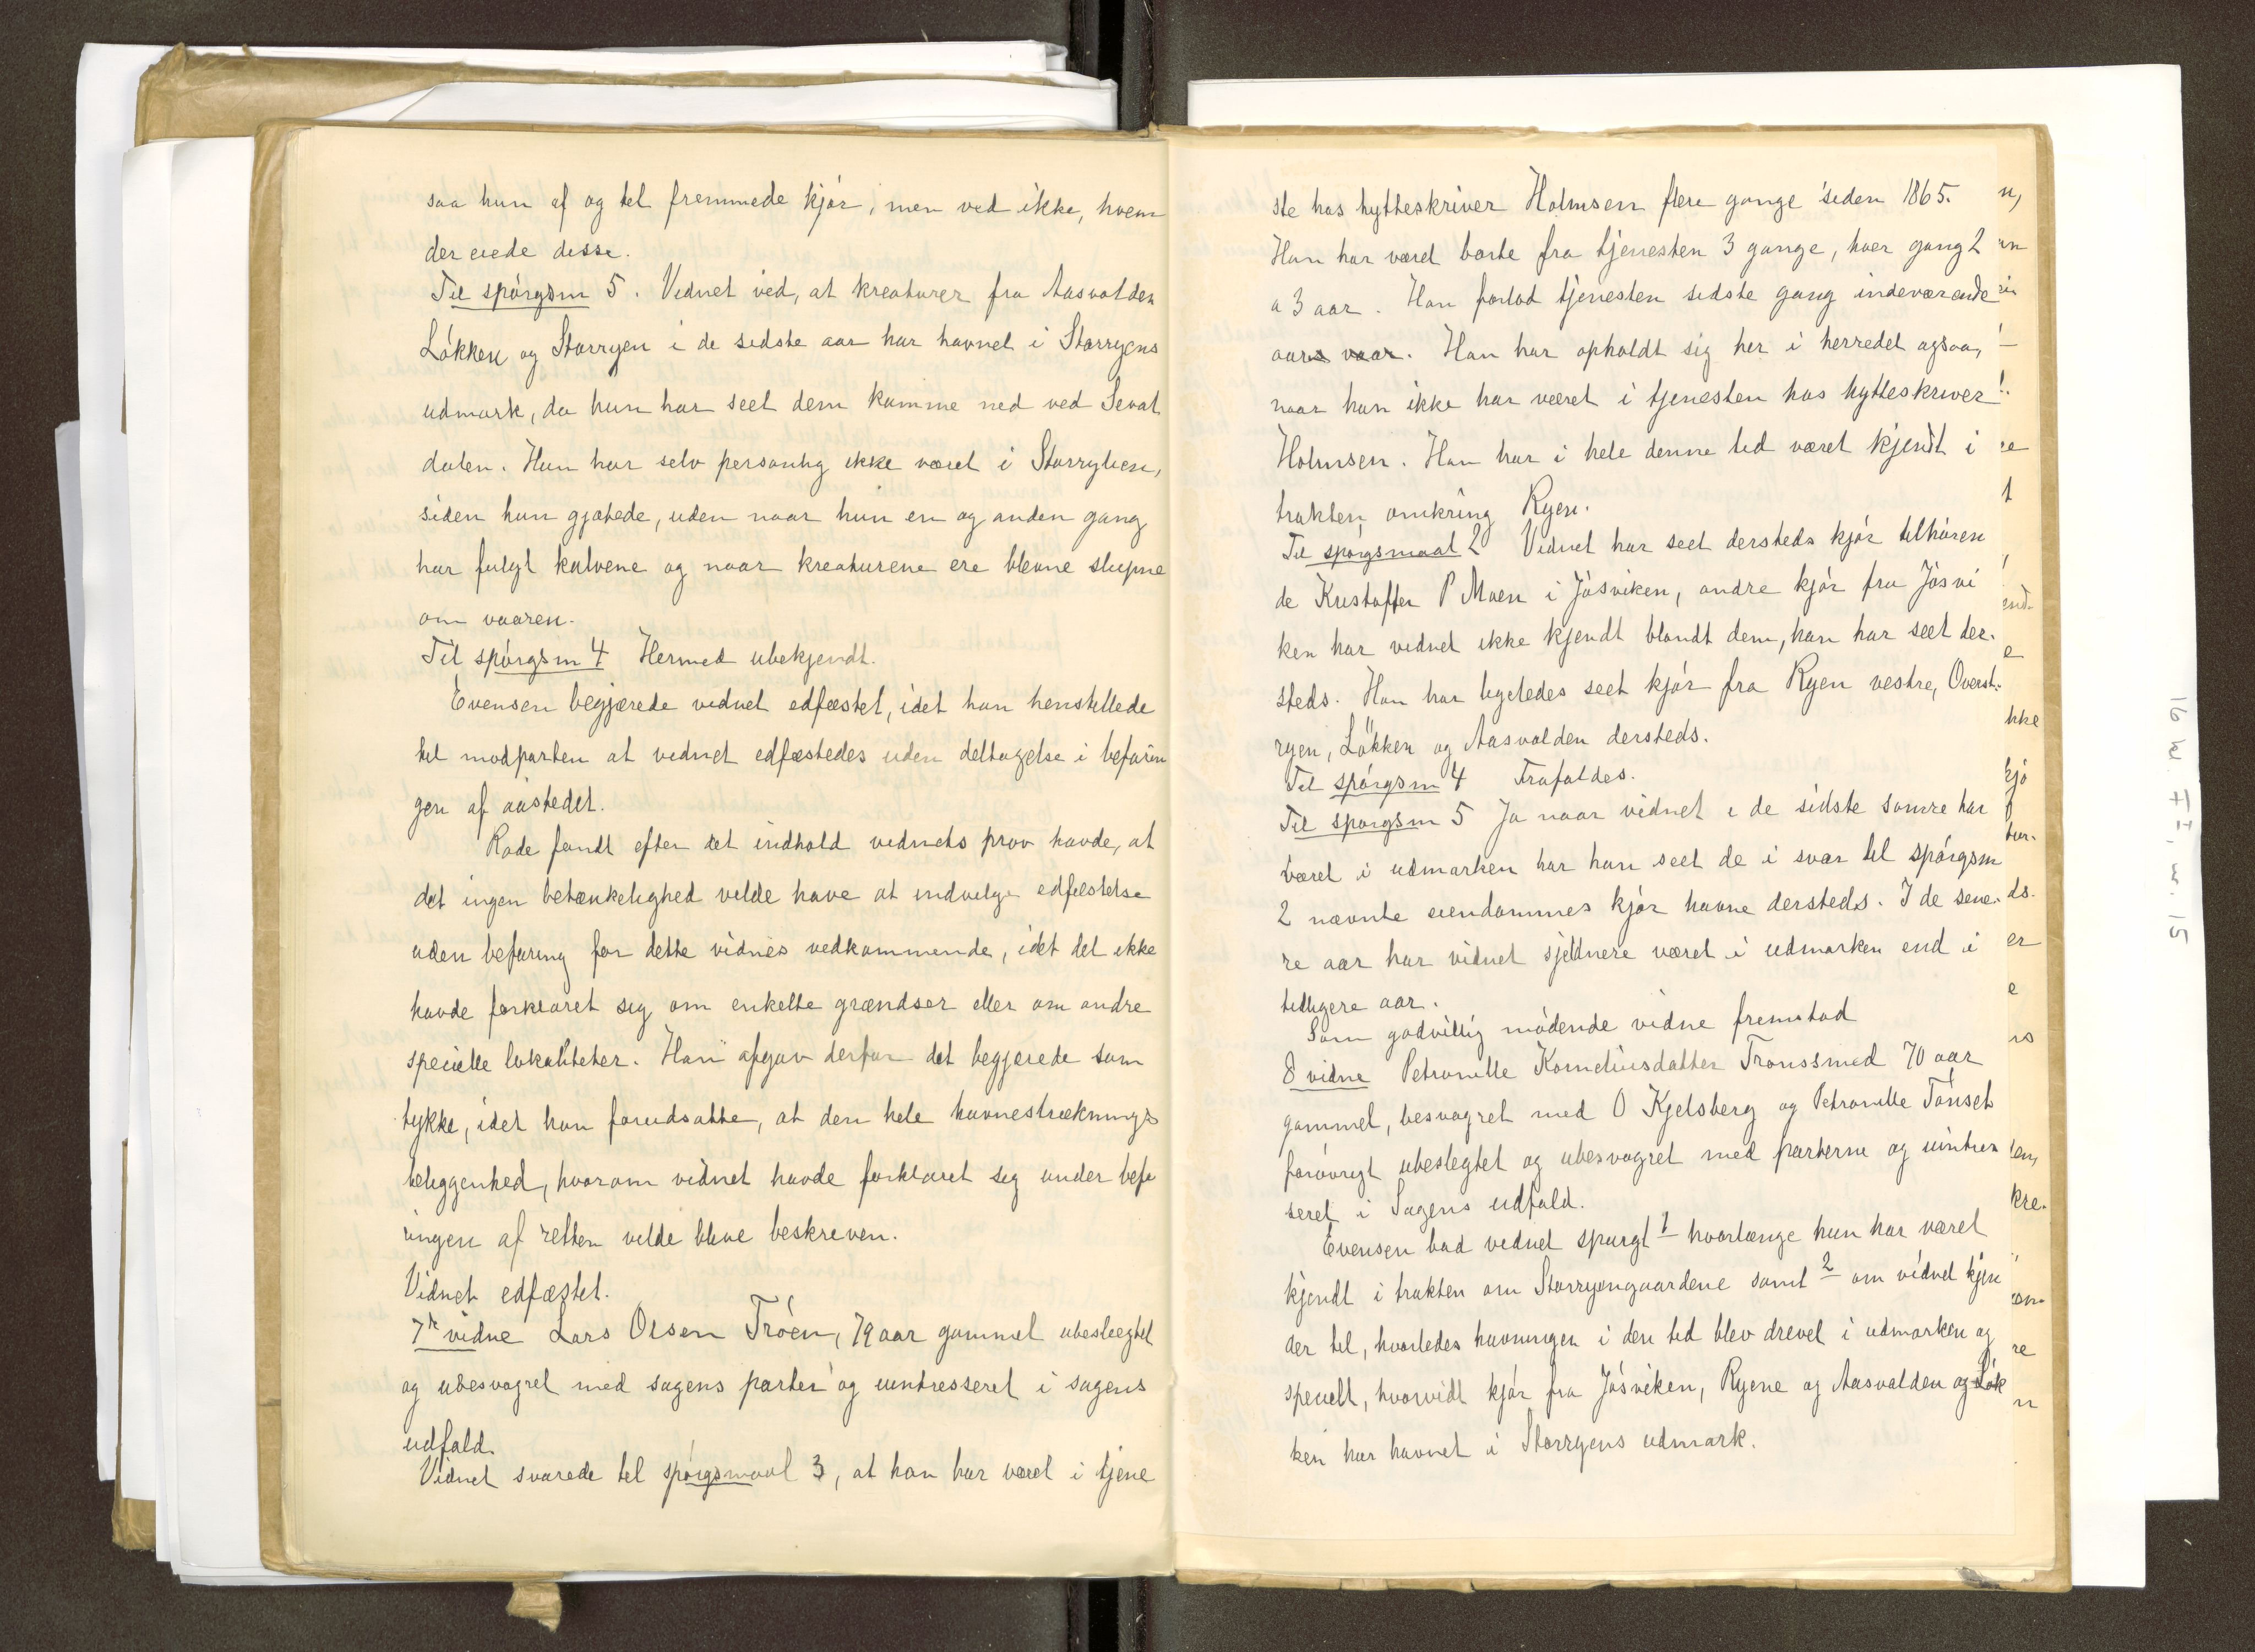 saa hun af og til fremmede kjør, men ved ikke, hvem
der eiede disse.
Til spørgsm 5. Vidnet ved, at kreaturer fra Aasvolden
Løkken og Storryen i de sidste aar har havnet i Storryens
udmark, da hun har seet dem komme ned ved Sevat
dalen. Hun har selv personlig ikke været i Storrylien,
siden hun gjætede, uden naar hun en og anden gang
har fulgt kalvene og naar kreaturene ere blevne slupne
om vaaren.
Til spørgsm 4 Hermed ubekjendt.
Evensen begjærede vidnet edfæstet, idet han henstillede
til modparten at vidnet edfæstedes uden deltagelse i befarin
gen af aastedet.
Rode fandt efter det indhold vidnets prov havde, at
det ingen betænkelighed vilde have at indvilge edfæstelse
uden befaring for dette vidnes vedkommende, idet det ikke
havde forklaret sig om enkelte grændser eller om andre
specielle lokaliteter. Han afgav derfor det begjerede sam
tykke, idet han forudsatte, at den hele havnestræknings
beliggenhed, hvorom vidnet havde forklaret sig under befa
ringen af retten vilde blive beskreven.
Vidnet edfæstet.
7de vidne Lars Olsen Trøen, 79 aar gammel ubeslægtet
og ubesvogret med sagens parter og uintresseret i sagens
udfald.
Vidnet svarede til spørgsmaal 3, at han har været i tjene
ste hos hytteskriver Holmsen flere gange siden 1865.
Han har været borte fra tjenesten 3 gange, hver gang 2
a 3 aar. Han forlod tjenesten sidste gang indeværende
aars vaar. Han har opholdt sig her i herredet ogsaa,
naar han ikke har været i tjenesten hos hytteskriver
Holmsen. Han har i hele denne tid været kjendt i
trakten omkring Ryen.
Til spørgsmaal 2 Vidnet har seet dersteds kjør tilhøren
de Kristoffer P Moen i Jøsviken, andre kjør fra Jøsvi
ken har vidnet ikke kjendt blandt dem, han har seet der-
steds. Han har ligeledes seet kjør fra Ryen vestre, Øverst-
ryen, Løkken og Aasvolden dersteds.
Til spørgsm 4 Frafaldes.
Til spørgsm 5 Ja naar vidnet i de sidste somre har
været i udmarken har han seet de i svar til spørgsm
2 nævnte eiendommes kjør havne dersteds. I de sene-
re aar har vidnet sjeldnere været i udmarken end i
tidligere aar.
Som godvillig mødende vidne fremstod
8 vidne Petronille Korneliusdatter Tronssmed 70 aar
gammel, besvogret med O Kjelsberg og Petronille Tønset
forøvrigt ubeslegtet og ubesvogret med parterne og uintres
seret i Sagens udfald.
Evensen bad vidnet spurgt 1 hvorlænge hun har været
kjendt i trakten om Storryengaardene samt 2 om vidnet kjen
der til, hvorledes havningen i den tid blev drevet i udmarken og
specielt, hvorvidt kjør fra Jøsviken, Ryene og Aasvolden og Løk
ken har havnet i Storryens udmark.
16 W. II, w. 15